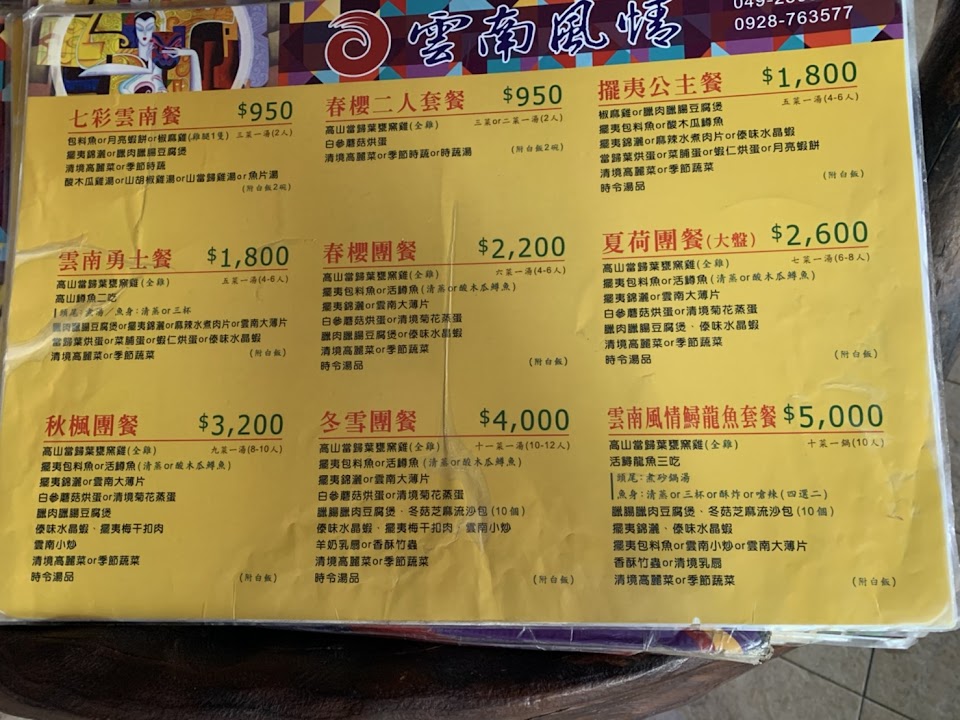 雲南風情
0928-763577
七彩雲南餐 $950
包料魚or月亮蝦餅or椒麻雞(雞腿1隻) 三菜一湯(2人)
擺夷錦灑or臘肉臘腸豆腐煲
清境高麗菜or季節時蔬
酸木瓜雞湯or山胡椒雞湯or山當歸雞湯or魚片湯
(附白飯2碗)
春櫻二人套餐 $950
高山當歸葉甕窯雞(全雞) 三菜or二菜一湯(2人)
白參蘑菇烘蛋
清境高麗菜or季節時蔬or時蔬湯 (附白飯2碗)
擺夷公主餐 $1,800
椒麻雞or臘肉臘腸豆腐煲 五菜一湯(4-6人)
擺夷包料魚or酸木瓜鱒魚
擺夷錦灑or麻辣水煮肉片or傣味水晶蝦
當歸葉烘蛋or菜脯蛋or蝦仁烘蛋or月亮蝦餅
清境高麗菜or季節蔬菜
時令湯品 (附白飯)
雲南勇士餐 $1,800
高山當歸葉甕窯雞(全雞) 五菜一湯(4-6人)
高山鱒魚二吃
頭尾:煮湯／魚身:清蒸or三杯
臘肉臘腸豆腐煲or擺夷錦灑or麻辣水煮肉片or雲南大薄片
當歸葉烘蛋or菜脯蛋or蝦仁烘蛋or傣味水晶蝦
清境高麗菜or季節蔬菜 (附白飯)
春櫻團餐 $2,200
高山當歸葉甕窯雞(全雞) 六菜一湯(4-6人)
擺夷包料魚or活鱒魚(清蒸or酸木瓜鱒魚)
擺夷錦灑or雲南大薄片
白參蘑菇烘蛋or清境菊花蒸蛋
臘肉臘腸豆腐煲or傣味水晶蝦
清境高麗菜or季節蔬菜
時令湯品 (附白飯)
夏荷團餐(大盤) $2,600
高山當歸葉甕窯雞(全雞) 七菜一湯(6-8人)
擺夷包料魚or活鱒魚(清蒸or酸木瓜鱒魚)
擺夷錦灑or雲南大薄片
白參蘑菇烘蛋or清境菊花蒸蛋
臘肉臘腸豆腐煲．傣味水晶蝦
清境高麗菜or季節蔬菜
時令湯品 (附白飯)
秋楓團餐 $3,200
高山當歸葉甕窯雞(全雞) 九菜一湯(8-10人)
擺夷包料魚or活鱒魚(清蒸or酸木瓜鱒魚)
擺夷錦灑or雲南大薄片
白參蘑菇烘蛋or清境菊花蒸蛋
臘肉臘腸豆腐煲
傣味水晶蝦．擺夷梅干扣肉
雲南小炒
清境高麗菜or季節蔬菜
時令湯品 (附白飯)
冬雪團餐 $4,000
高山當歸葉甕窯雞(全雞) 十一菜一湯(10-12人)
擺夷包料魚or活鱒魚(清蒸or酸木瓜鱒魚)
擺夷錦灑or雲南大薄片
白參蘑菇烘蛋or清境菊花蒸蛋
臘腸臘肉豆腐煲．冬菇芝麻流沙包(10個)
傣味水晶蝦．擺夷梅干扣肉．雲南小炒
羊奶乳扇or香酥竹蟲
清境高麗菜or季節蔬菜
時令湯品 (附白飯)
雲南風情鱘龍魚套餐 $5,000
高山當歸葉甕窯雞(全雞) 十菜一鍋(10人)
活鱘龍魚三吃
頭尾:煮砂鍋湯
魚身:清蒸or三杯or酥炸or嗆辣(四選二)
臘腸臘肉豆腐煲．冬菇芝麻流沙包(10個)
擺夷錦灑．傣味水晶蝦
擺夷包料魚or雲南小炒or雲南大薄片
香酥竹蟲or清境乳扇
清境高麗菜or季節蔬菜 (附白飯)